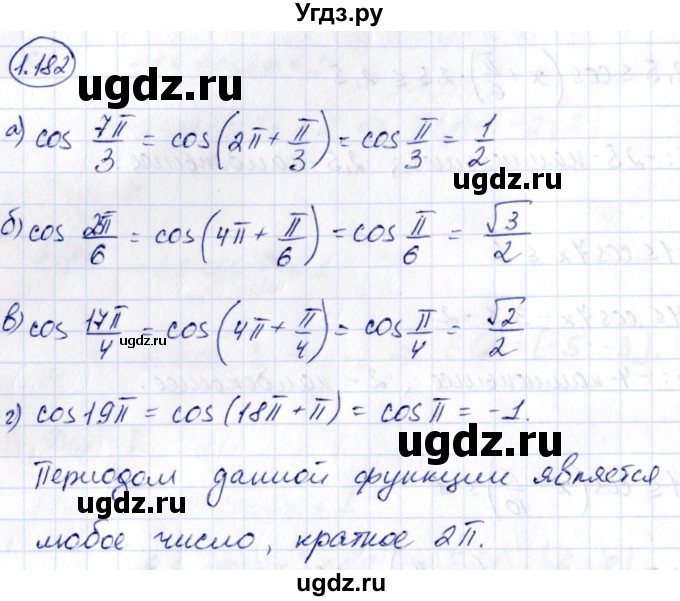 Угдз.ру
1.182
а) cos 7π/3 = cos(2π + π/3) = cos π/3 = 1/2
б) cos 25π/6 = cos(4π + π/6) = cos π/6 = √3/2
в) cos 17π/4 = cos(4π + π/4) = cos π/4 = √2/2
ugdz.ru
г) cos19π = cos(18π + π) = cosπ = -1.
ugdz.ru
ugdz.ru
Периодом данной функции является
любое число, кратное 2π.
ugdz.ru
ugdz.ru